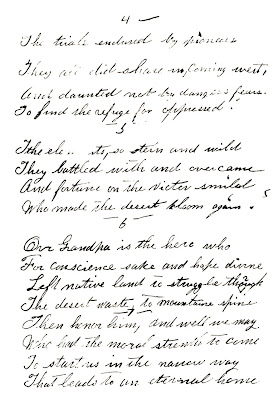 4 —
The trials endured by pioneers
They all did share in coming west,
And daunted not by dangers fears.
To find the refuge for oppressed.
5
The so stern and wild
They battled with and overcame
And fortune on the victor smiled
Who made the desert bloom again.
6
Our Grandpa is the hero who
For conscience sake and hope divine
Left native land to struggle through
The desert waste, to mountains spine
7
Then honor him, and well we may
Who had the moral strength to come
To start us in the narrow way
That leads to an eternal home